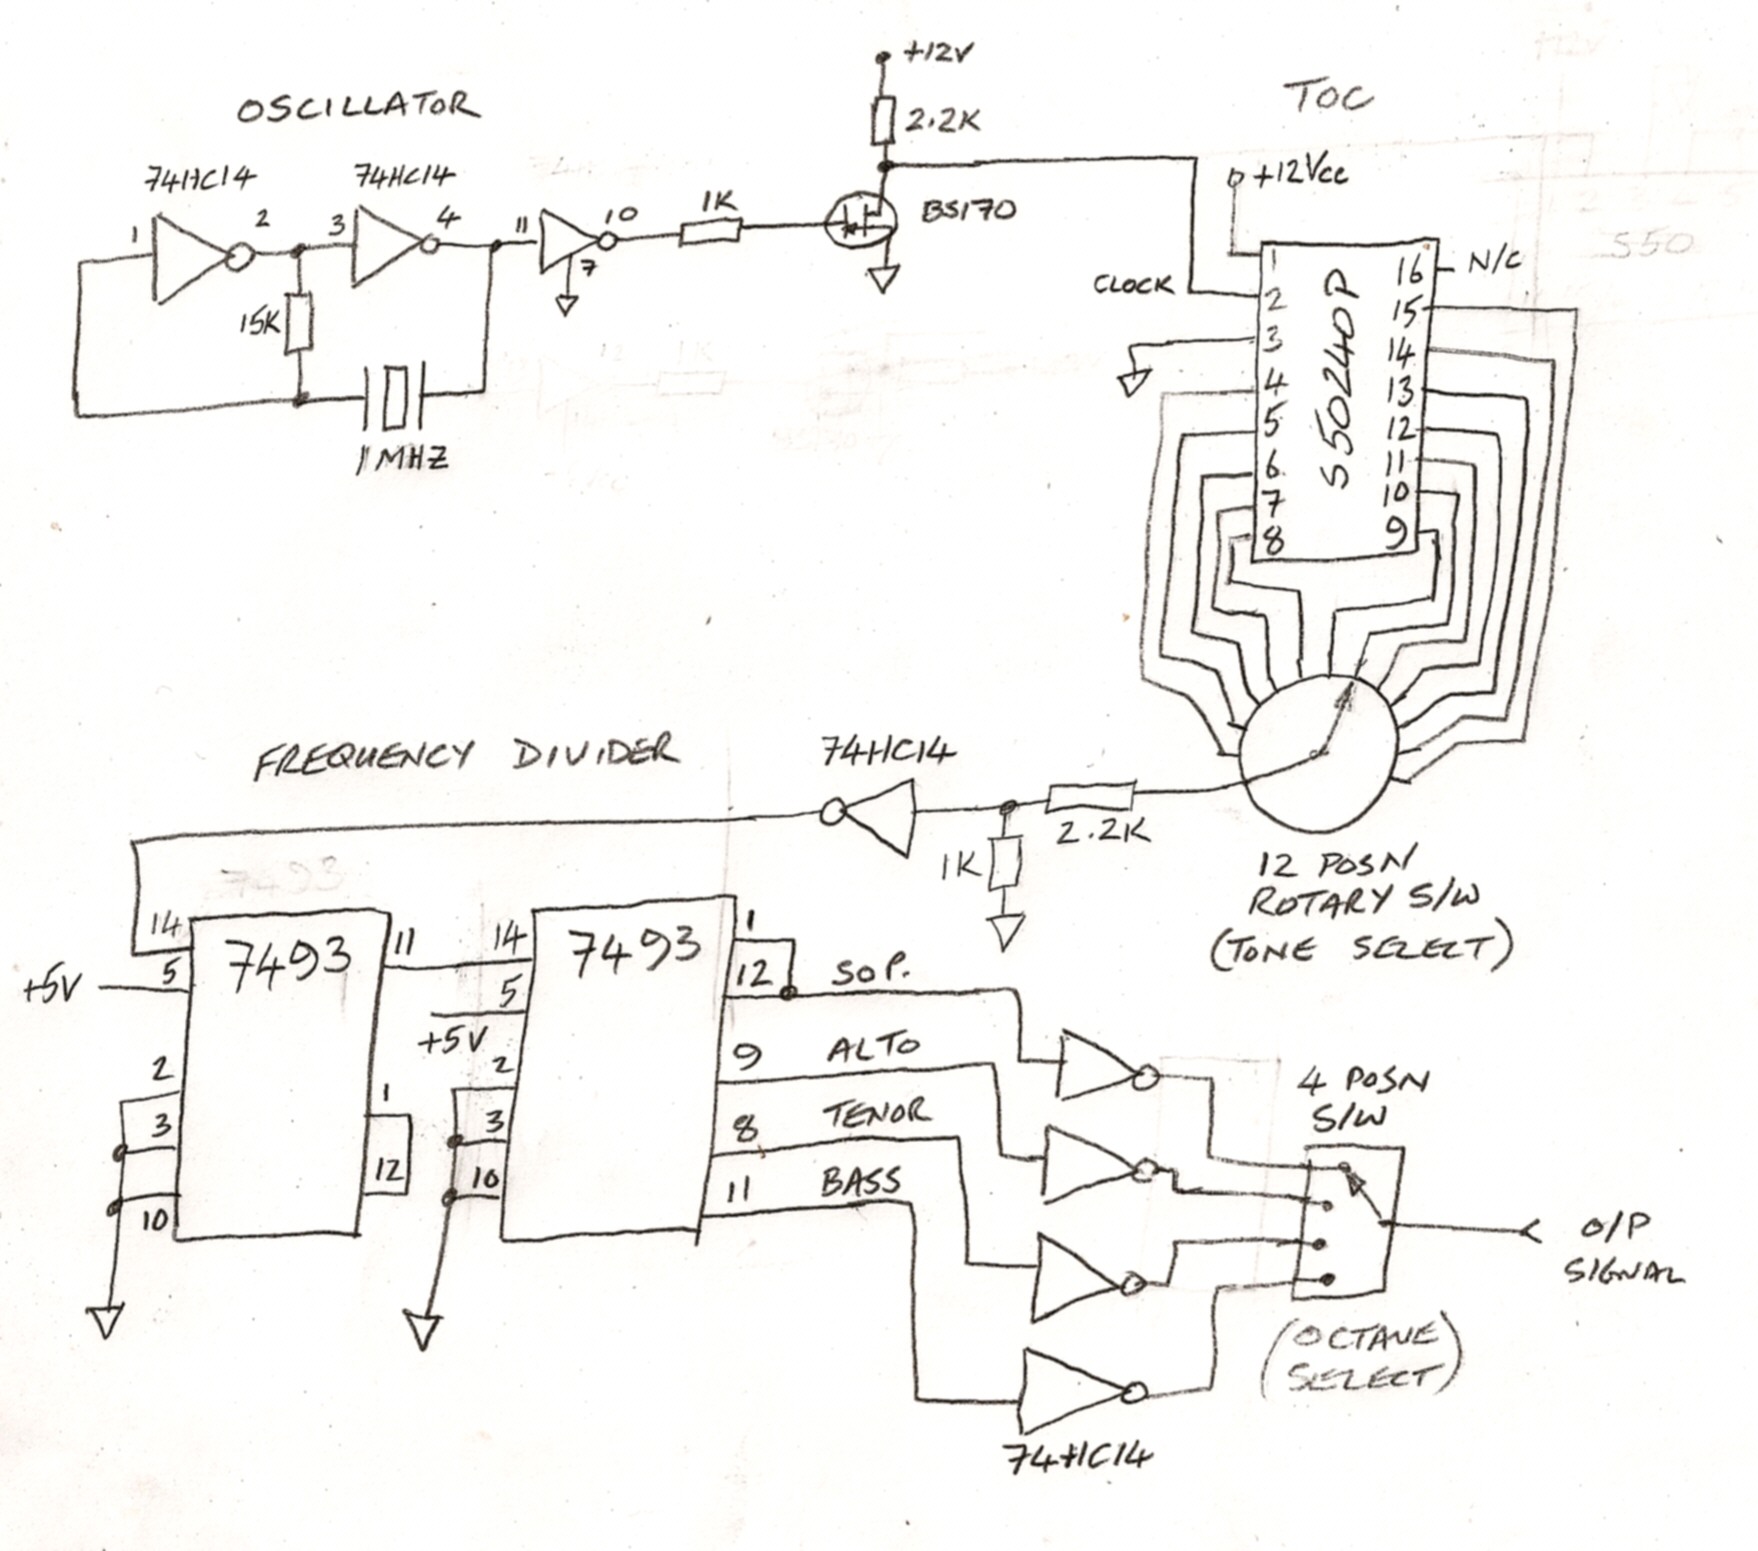 OSCILLATOR
74HC14
74HC14
1
2
3
4
11
10
7
15K
1 MHZ
1K
+12V
2.2K
BS170
TOC
+12Vcc
CLOCK
S50240P
1
2
3
4
5
6
7
8
16
15
14
13
12
11
10
9
N/C
S50
FREQUENCY DIVIDER
74HC14
2.2K
1K
12 POSN
ROTARY S/W
(TONE SELECT)
7493
14
5
+5V
2
3
10
7493
11
1
12
14
5
+5V
2
3
10
7493
1
12
9
8
11
SOP.
ALTO
TENOR
BASS
74HC14
4 POSN
S/W
(OCTAVE
SELECT)
O/P
SIGNAL